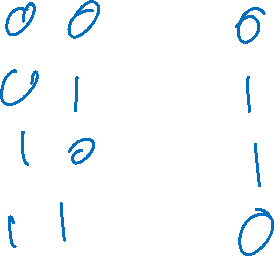 0 0 0
0 1 1
1 0 1
1 1 0